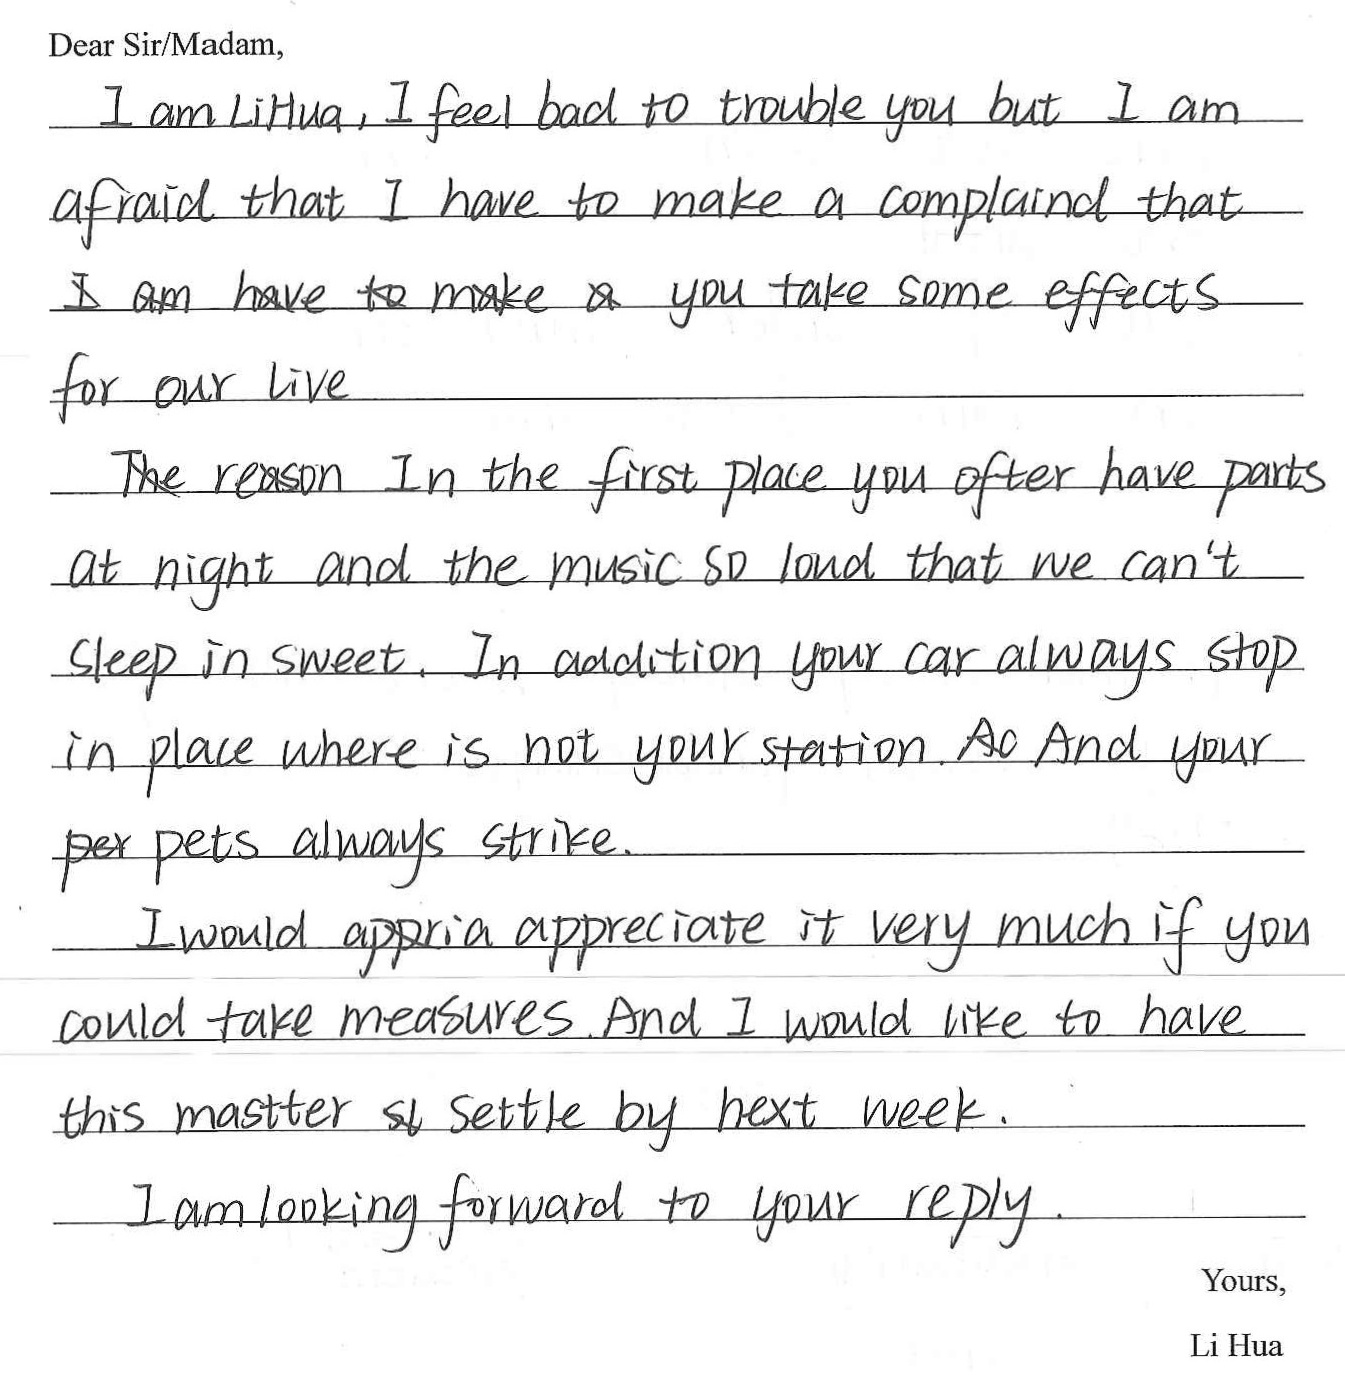 Dear Sir/Madam,
I am LiHua, I feel bad to trouble you but I am
afraid that I have to make a complaind that
I am have to make a you take some effects
for our live
The reason In the first place you ofter have parts
at night and the music so loud that we can't
sleep in sweet. In addition your car always stop
in place where is not your station. Ac And your
per pets always strike.
I would appria appreciate it very much if you
could take measures. And I would like to have
this mastter sl settle by next week.
I am looking forward to your reply.
Yours,
Li Hua